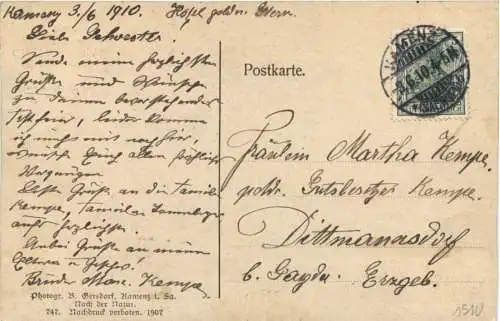 Kamenz 3./6 1910. Hotel goldn. Stern.
Liebe Schwester
Sende meine herzlichsten
Grüße und Wünsche
zu deinem bevorstehenden
leider komme
ich nicht mit
wünsche Euch allen fröhliches
Vergnügen
Beste Grüße an die Familie
Kempe, Familie
aufs herzlichste.
Grüße an meine
Eltern u.
Bruder Max Kempe
Photogr. B. Gersdorf, Kamenz i. Sa.
Nach der Natur.
747. Nachdruck verboten. 1907
Postkarte.
KAMENZ
Fräulein Martha Kempe,
Gutsbesitzer Kempe.
Dittmannsdorf
b. Erzgeb.
1510